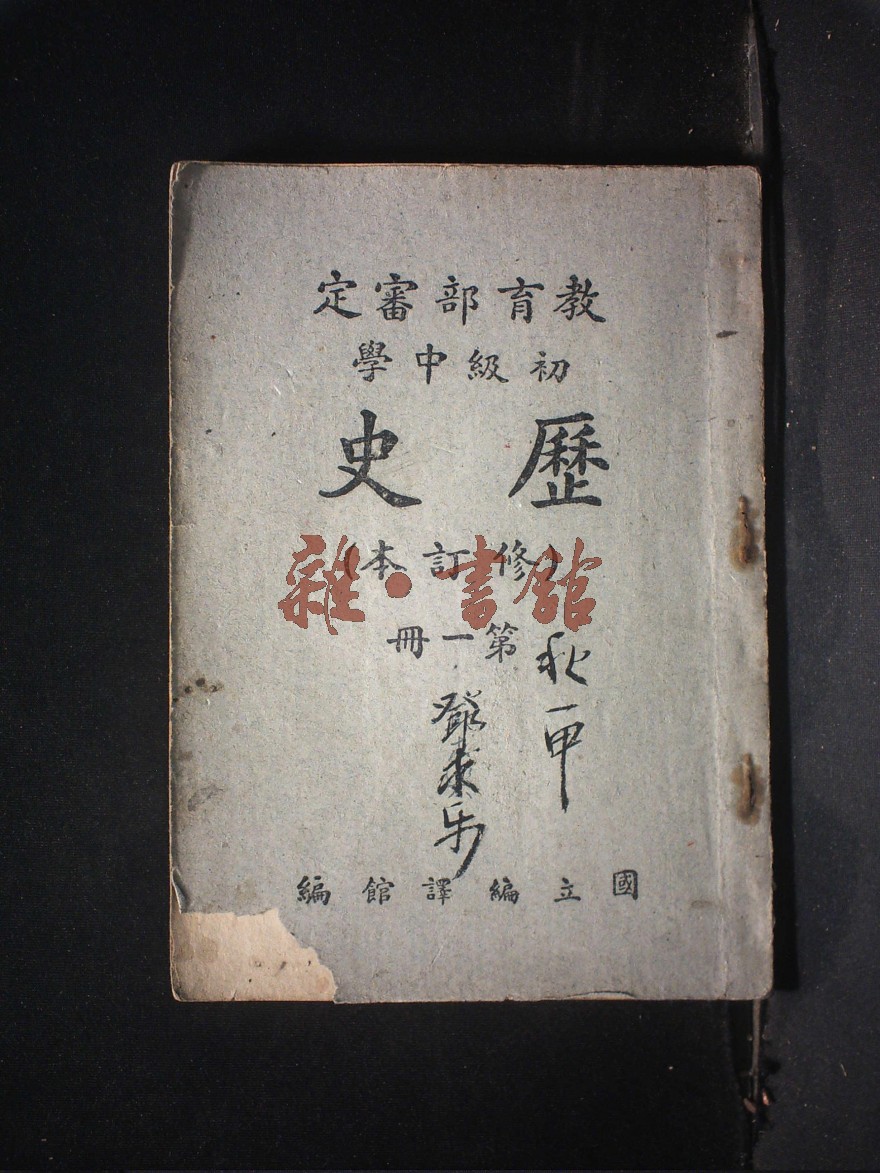 教育部審定
初級中學
歷史
(修訂本)
第一冊
秋一甲
鄧永乐
國立編譯館編
雜·書館